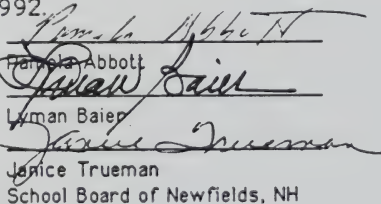 992.
Pamela Abbott
Pamela Abbott
Lyman Baier
Lyman Baier
Janice Trueman
Janice Trueman
School Board of Newfields, NH